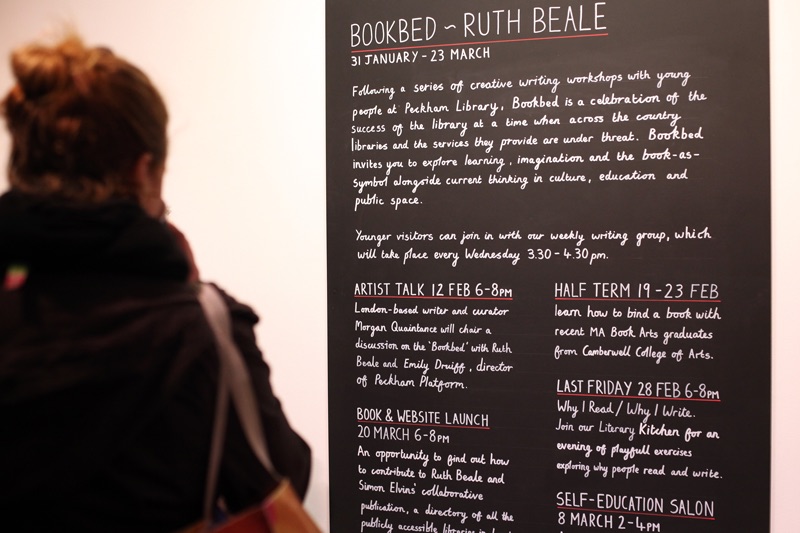 BOOKBED ~ RUTH BEALE
31 JANUARY - 23 MARCH
Following a series of creative writing workshops with young
people at Peckham Library, Bookbed is a celebration of the
success of the library at a time when across the country
libraries and the services they provide are under threat. Bookbed
invites you to explore learning, imagination and the book-as-
symbol alongside current thinking in culture, education and
public space.
Younger visitors can join in with our weekly writing group, which
will take place every Wednesday 3.30 - 4.30pm.
ARTIST TALK 12 FEB 6-8PM
London-based writer and curator
Morgan Quaintance will chair a
discussion on the 'Bookbed' with Ruth
Beale and Emily Druiff, director
of Peckham Platform.
BOOK & WEBSITE LAUNCH
20 MARCH 6-8PM
An opportunity to find out how
to contribute to Ruth Beale and
Simon Elvins' collaborative
publication, a directory of all the
publicly accessible libraries in
HALF TERM 19 - 23 FEB
learn how to bind a book with
recent MA Book Arts graduates
from Camberwell College of Arts.
LAST FRIDAY 28 FEB 6-8PM
Why I Read / Why I Write.
Join our Literary Kitchen for an
evening of playfull exercises
exploring why people read and write.
SELF-EDUCATION SALON
8 MARCH 2-4PM